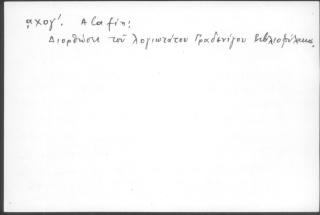 ͵αχογ'. Αλαφίη:
Διορθώσει τοῦ λογιωτάτου Γραδενίγου βιβλιοφύλακος